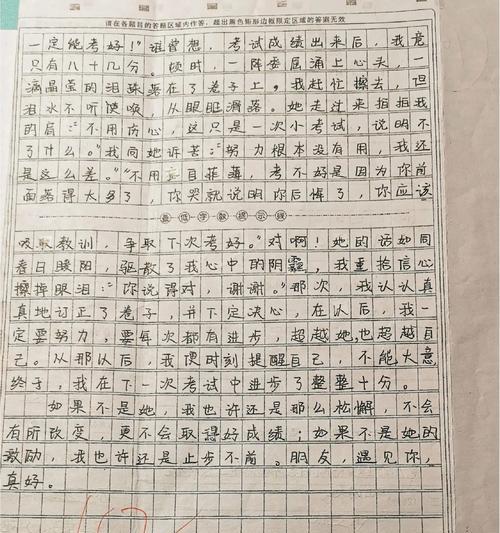 请在各题目的答题区域内作答，超出黑色矩形边框限定区域的答案无效
一定能考好！”谁曾想，考试成绩出来后，我竟
只有八十几分。顿时，一阵委屈涌上心头，一
滴晶莹的泪珠落在了卷子上，我赶忙擦去，但
泪水不听使唤，从眼眶滴落。她走过来拍拍我
的肩：“不用伤心，这只是一次小考试，说明不
了什么。”我向她诉苦：“努力根本没有用，我还
是这么差。”“不用妄自菲薄，考不好是因为你前
面落得太多了，你哭就说明你后悔了，你应该
最低字数提示线
吸取教训，争取下次考好。”对啊！她的话如同
春日暖阳，驱散了我心中的阴霾，我重拾信心
擦掉眼泪：“你说得对，谢谢。”那次，我认认真
真地订正了卷子，并下定决心，在以后，我一
定要努力，要每次都有进步，超越她，也超越自
己。从那以后，我便时刻提醒自己，不能大意
终于，我在下一次考试中进步了整整十分。
如果不是她，我也许还是那么松懈，不会
有所改变，更不会取得好成绩；如果不是她的
激励，我也许还是止步不前。朋友，遇见你，
真好。